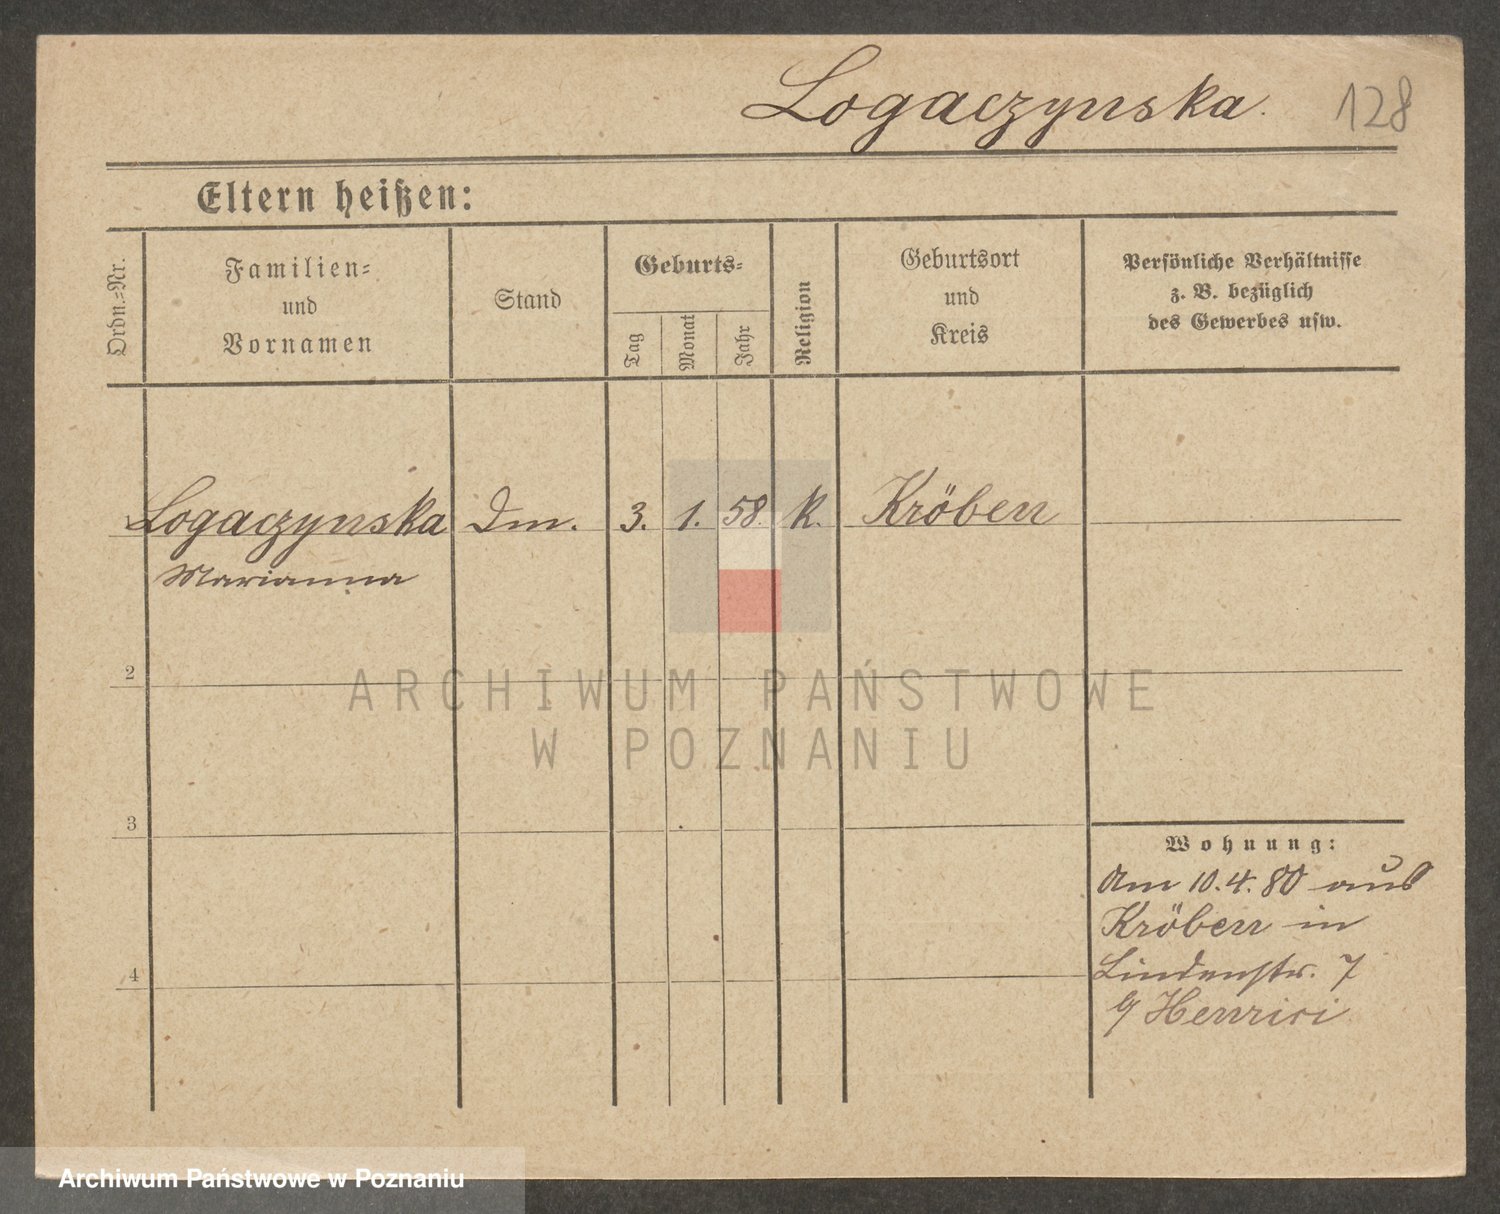 Logaczynska.
128
Eltern heißen:
Ordn.=Nr.
Familien=
und
Vornamen
Stand
Geburts=
Tag
Monat
Jahr
Religion
Geburtsort
und
Kreis
Persönliche Verhältnisse
z. B. bezüglich
des Gewerbes usw.
Logaczynska Dm. 3. 1. 58. K. Kröben
Marianna
2
3
4
Wohnung:
Am 10.4.80 aus
Kröben in
Lindenstr. 7
b/ Henrici
ARCHIWUM PAŃSTWOWE
W POZNANIU
Archiwum Państwowe w Poznaniu